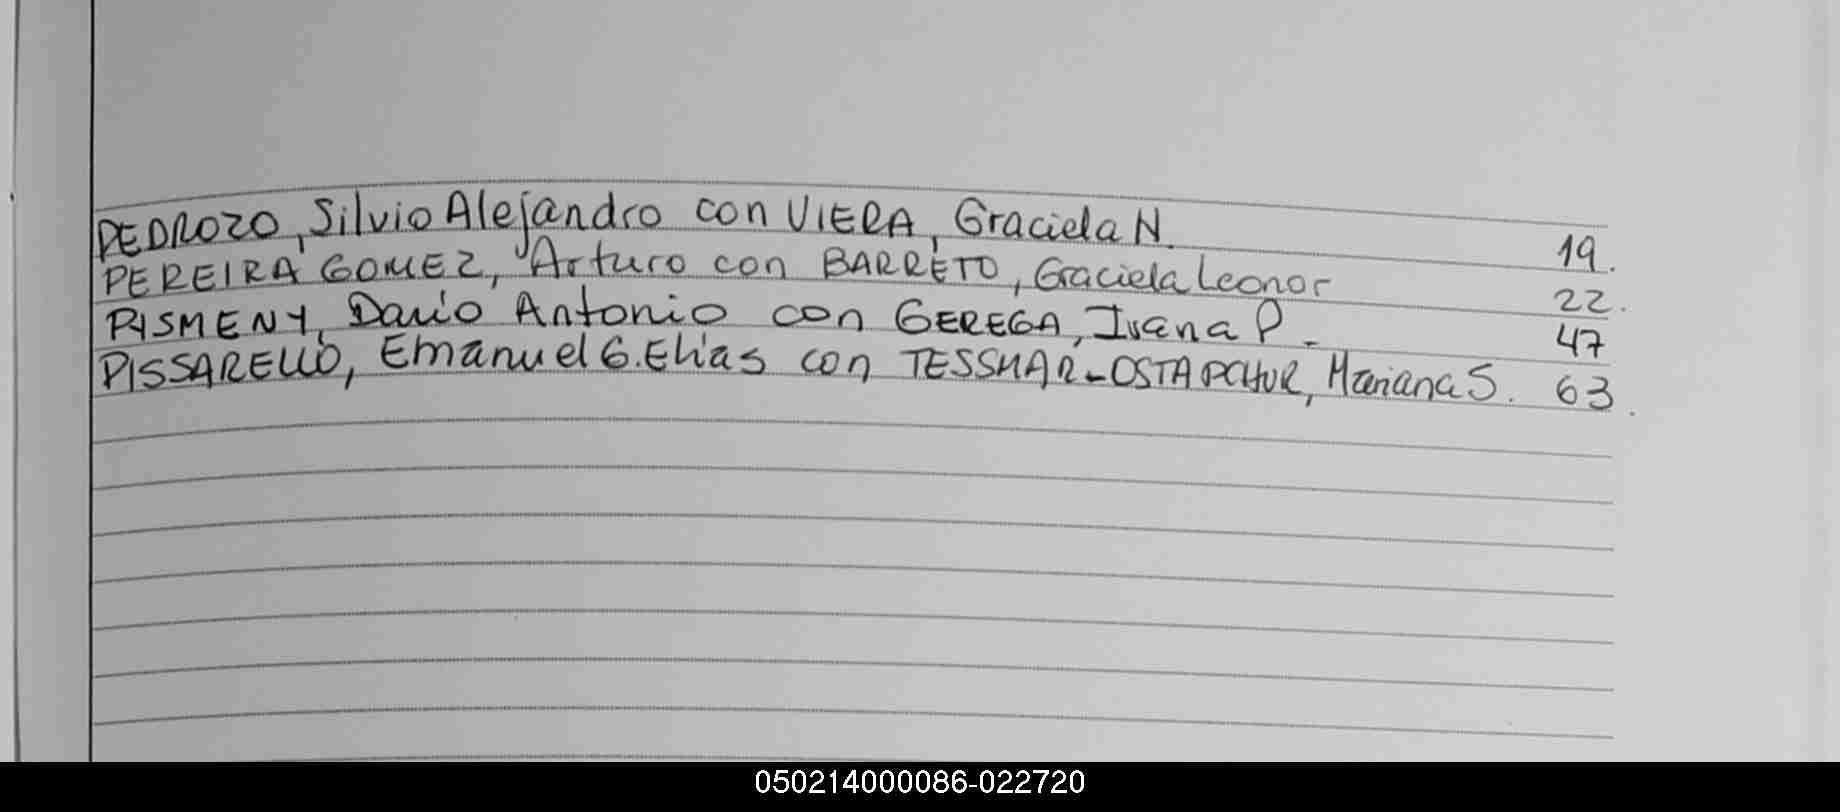 PEDROZO, Silvio Alejandro con VIERA, Graciela N. 19.
PEREIRA GOMEZ, Arturo con BARRETO, Graciela Leonor 22.
PISMENY, Darío Antonio con GEREGA, Ivana P. 47
PISSARELLO, Emanuel G. Elias con TESSMAR-OSTAPCHUR, Mariana S. 63.
050214000086-022720